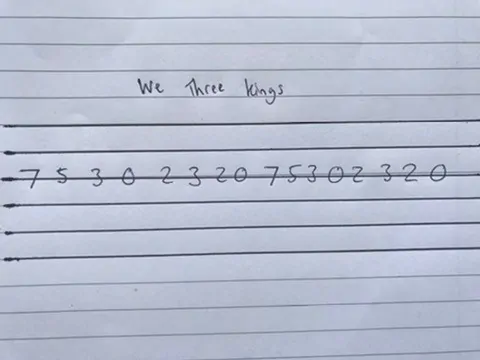 We Three kings
7 5 3 0 2 3 2 0 7 5 3 0 2 3 2 0